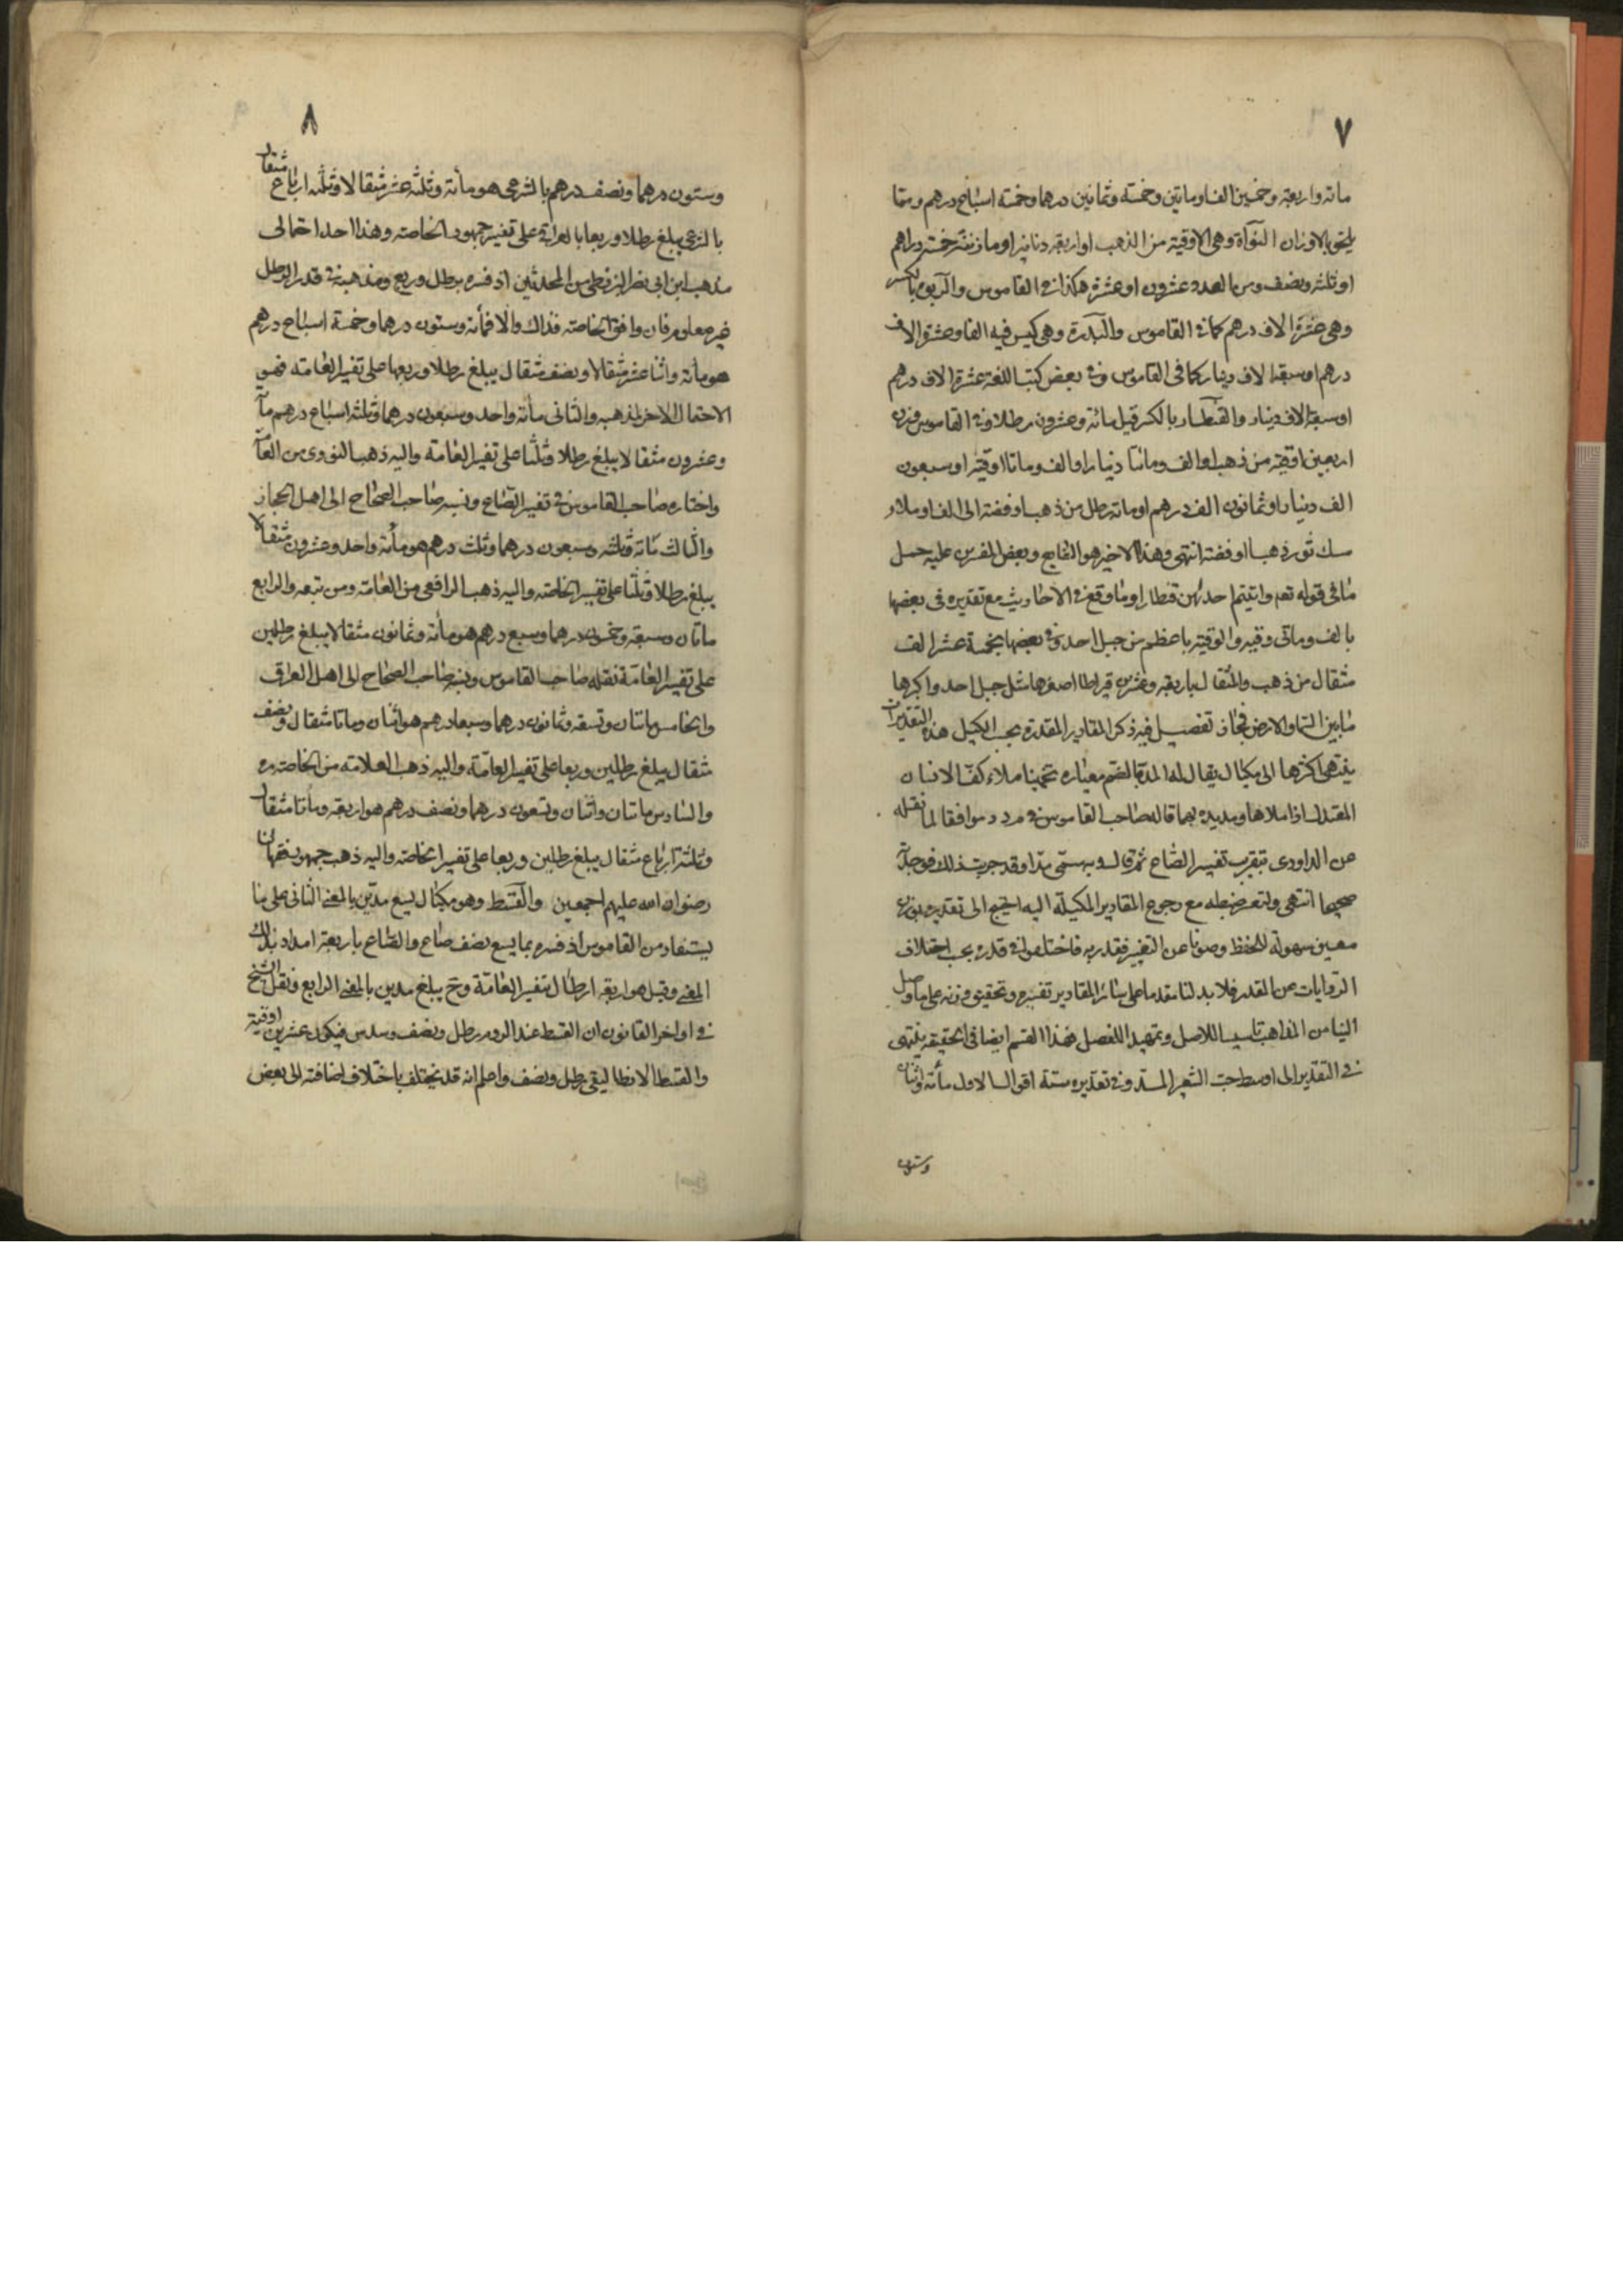 ٧
مائه واربعة وخمسين الفا ومائتين وخمسة وثمانين درهما وخمسة اسباع درهم ومما
يلحق بالاوزان النواة وهى الاوقية من الذهب او اربعة دنانير او ما زنته خمسة دراهم
او ثلثة ونصف ومن العدد عشرون او عشرة هكذا فى القاموس والربوة بالكسر
وهى عشرة الاف درهم كما فى القاموس والبدرة وهى كيس فيه الف او عشرة الاف
درهم او سبعة الاف دينار كما فى القاموس وفى بعض كتب اللغة عشرة الاف درهم
او سبعة الاف دينار والقنطار بالكسر قيل مائة وعشرون رطلا وفى القاموس وزن
اربعين اوقية من ذهب او الف ومائتا دينار او الف ومائتا اوقية او سبعون
الف دينار او ثمانون الف درهم او مائة رطل من ذهب او فضة او الف او ملاء
مسك ثور ذهبا او فضة انتهى وهذا الاخير هو الشايع وبعض المفسرين عليه حمل
ما فى قوله تعم واتيتم احديهن قنطارا وما وقع فى الاحاديث مع تقديره فى بعضها
بالف ومائتى وقيه والوقية باعظم من جبل احد وفى بعضها بخمسة عشر الف
مثقال من ذهب والمثقال باربعة وعشرين قيراطا اصغرها مثل جبل احد واكبرها
ما بين السماء والارض فمجاز تفصيل فيه ذكر المقادير المقدرة بحسب الكيل هذه التقديرات
ينتهى اكثرها الى مكيال يقال له المد بالضم معياره تخمينا ملاء كف الانسان
المعتدل اذا ملاها ومد يده بهما قاله صاحب القاموس فى م د د موافقا لما نقله
عن الداودى بتقريب تفسير الصاع ثم قال وبه سمى مدا وقد جربت ذلك فوجدته
صحيحا انتهى ولتعسر ضبطه مع رجوع المقادير المكيلة اليه احتيج الى تقديره بوزن
معين سهولة للحفظ وصونا عن التغيير فقدر به فاختلفوا فى قدره بحسب اختلاف
الروايات عن المقدر فلا بد لنا مقدما على سائر المقادير تفسيره وتحقيق وزنه على ما وصل
الينا من المذاهب تاسيسا للاصل وتمهيدا للفصل فهذا القسم ايضا فى الحقيقة ينتهى
فى التقدير الى اوسط حب الشعير المستد وفى تقديره ستة اقوال الاول مأئة واثنان
وستون
٨
وستون درهما ونصف درهم بالشرعى هو مائة وثلثة عشر مثقالا وثلثة ارباع مثقال
بالشرعى يبلغ رطلا وربعا بالعراقى على تفسير جمهور الخاصة وهذا احد احتمالى
مذهب ابن ابى نصر البزنطى من المحدثين اذ فسره برطل وربع ومذهبه فى قدر الرطل
غير معلوم فان وافق الخاصة فذاك والا فمأئة وستون درهما وخمسة اسباع درهم
هو مأئة واثنا عشر مثقالا ونصف مثقال يبلغ رطلا وربعا على تفسير العامة فهو
الاحتمال الاخر لمذهبه والثانى مائة واحد وسبعون درهما وثلثة اسباع درهم مأئة
وعشرون مثقالا يبلغ رطلا وثلثا على تفسير العامة واليه ذهب النووى من العامة
واختاره صاحب القاموس فى تفسير الصاع ونسبه صاحب الصحاح الى اهل الحجاز
والثالث مائة وثلثة وسبعون درهما وثلث درهم هو مأئة واحد وعشرون مثقالا
يبلغ رطلا وثلثا على تفسير الخاصة واليه ذهب الرافعى من العامة ومن تبعه والرابع
مائتان وسبعة وخمسون درهما وسبع درهم هو مأئة وثمانون مثقالا يبلغ رطلين
على تفسير العامة نقله صاحب القاموس ونسبه صاحب الصحاح الى اهل العراق
والخامس مائتان وتسعة وثمانون درهما وسبعا درهم هو اثنان ومائتا مثقال ونصف
مثقال يبلغ رطلين وربعا على تفسير العامة واليه ذهب العلامة من الخاصة ره
والسادس مائتان واثنان وتسعون درهما ونصف درهم هو اربعة ومأئتا مثقال
وثلثة ارباع مثقال يبلغ رطلين وربعا على تفسير الخاصة واليه ذهب جمهور فقهائنا
رضوان الله عليهم اجمعين والقسط وهو مكيال يسع مدين بالمعنى الثانى على ما
يستفاد من القاموس اذ فسره بما يسع نصف صاع والصاع باربعة امداد بذلك
المعنى وقيل هو اربعة ارطال بتفسير العامة وح يبلغ مدين بالمعنى الرابع ونقل الشيخ
فى اواخر القانون ان القسط عند الروم رطل ونصف وسدس فيكون عشرين اوقية
والقسط الانطاليقى رطل ونصف واعلم انه قد يختلف باختلاف اضافته الى بعض